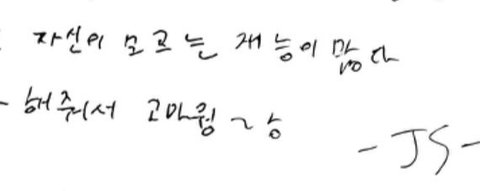 자신이 모르는 재능이 많다
해줘서 고마웡~ 능
- JS -